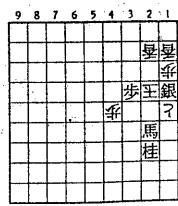 9 8 7 6 5 4 3 2 1
香 香
歩
歩 玉 銀
歩 と
馬
桂